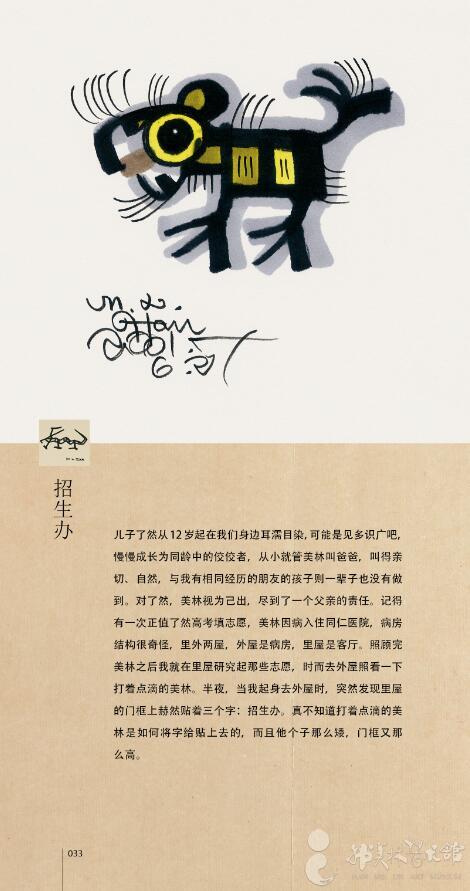 m.L.
Han
2001.
6.27
招生办
儿子了然从12岁起在我们身边耳濡目染，可能是见多识广吧，
慢慢成长为同龄中的佼佼者，从小就管美林叫爸爸，叫得亲
切、自然，与我有相同经历的朋友的孩子则一辈子也没有做
到。对了然，美林视为己出，尽到了一个父亲的责任。记得
有一次正值了然高考填志愿，美林因病入住同仁医院，病房
结构很奇怪，里外两屋，外屋是病房，里屋是客厅。照顾完
美林之后我就在里屋研究起那些志愿，时而去外屋照看一下
打着点滴的美林。半夜，当我起身去外屋时，突然发现里屋
的门框上赫然贴着三个字：招生办。真不知道打着点滴的美
林是如何将字给贴上去的，而且他个子那么矮，门框又那
么高。
033
韩美林艺术馆
HAN MEI LIN ART MUSEUM